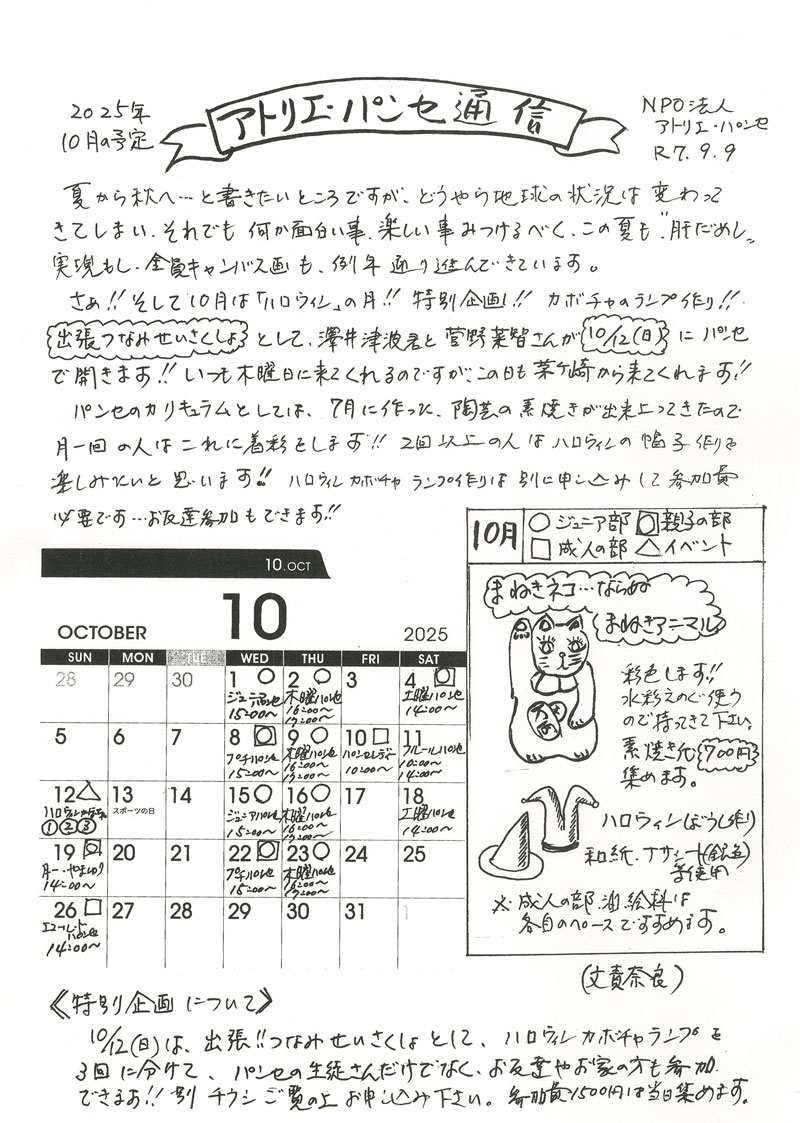 2025年
10月の予定
アトリエ・パンセ通信
NPO法人
アトリエ・パンセ
R7.9.9
夏から秋へ…と書きたいところですが、どうやら地球の状況は変わって
きてしまい、それでも何か面白い事、楽しい事みつけるべく、この夏も"肝だめし"
実現もし、全員キャンバス画も、例年通り進んできています。
さぁ!!そして10月は「ハロウィン」の月!!特別企画!!カボチャのランプ作り!!
出張つなみせいさくしょとして、澤井津波君と菅野菜智さんが10/12(日)にパンセ
で開きます!!いつも木曜日に来てくれるのですが、この日も茅ケ崎から来てくれます!!
パンセのカリキュラムとしては、7月に作った、陶芸の素焼きが出来上ってきたので
月一回の人はこれに着彩をします!!2回以上の人はハロウィンの帽子作りを
楽しみたいと思います!!ハロウィンカボチャランプ作りは別に申し込みして参加費
必要です…お友達参加もできます!!
10月
○ジュニア部 親子の部
□成人の部 △イベント
10.OCT
OCTOBER 10 2025
SUN MON TUE WED THU FRI SAT
28 29 30 1○ 2○ 3 4
ジュニアパンセ 木曜パンセ 土曜パンセ
15:00〜 16:00〜 14:00〜
17:00〜
5 6 7 8 9○ 10□ 11
プチパンセ 木曜パンセ パンセレディー パンセ
15:00〜 16:00〜 10:00〜 10:00〜
17:00〜 14:00〜
12△ 13 14 15○ 16○ 17 18
ハロウィンかぼちゃ スポーツの日 ジュニアパンセ 木曜パンセ 土曜パンセ
①②③ 15:00〜 16:00〜 14:00〜
17:00〜
19 20 21 22 23○ 24 25
月一・やまゆり プチパンセ 木曜パンセ
14:00〜 15:00〜 16:00〜
17:00〜
26□ 27 28 29 30 31 1
エコールド
パンセ
14:00〜
まねきネコ…ならぬ
まねきアニマル
彩色します!!
水彩えのぐ使う
ので持ってきて下さい。
素焼き代700円
集めます。
ハロウィンぼうし作り
和紙・ナサシート(銀色)
等使用
※成人の部、油絵科は
各自のペースですすめます。
(文責奈良)
《特別企画について》
10/12(日)は、出張!!つなみせいさくしょとして、ハロウィンカボチャランプを
3回に分けて、パンセの生徒さんだけでなく、お友達やお家の方も参加
できます!!別チラシご覧の上お申し込み下さい。参加費1500円は当日集めます。